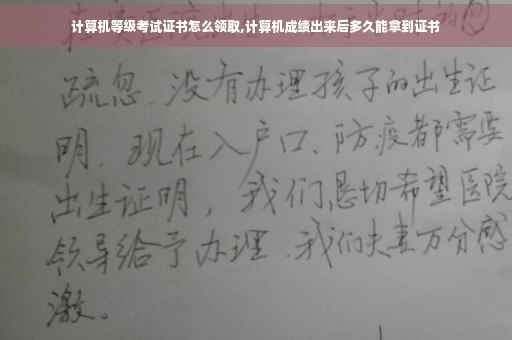 计算机等级考试证书怎么领取,计算机成绩出来后多久能拿到证书
疏忽.没有办理孩子的出生证
明.现在入户口、防疫都需要
出生证明,我们恳切希望医院
领导给予办理.我们夫妻万分感
激。